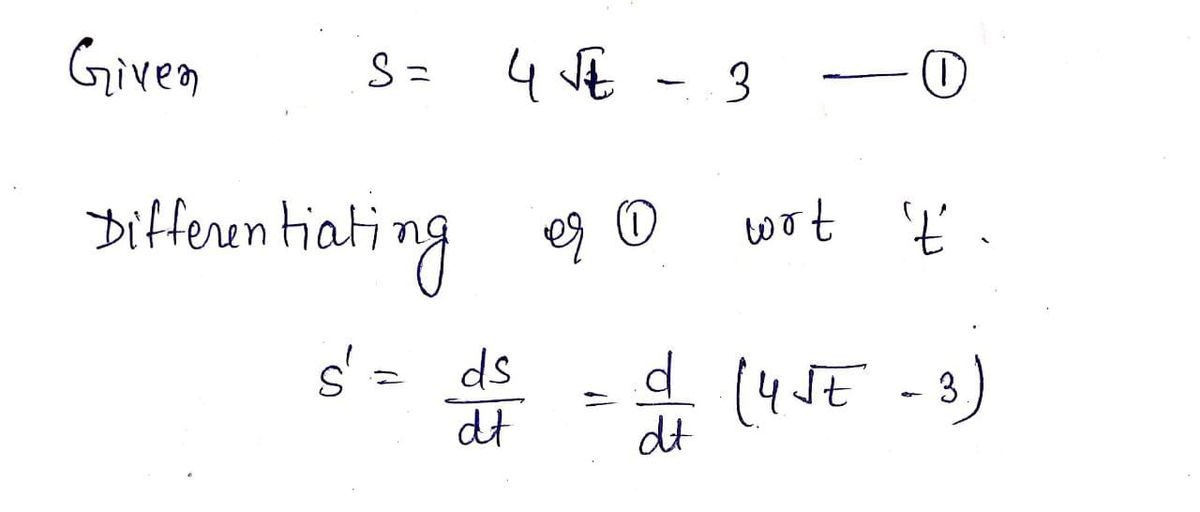 Given S = 4 √t - 3 — ①
Differentiating eq ① wrt 't'.
s' = ds/dt = d/dt (4√t - 3)